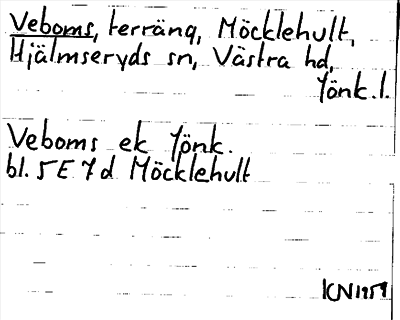 Veboms, terräng, Möcklehult,
Hjälmseryds sn, Västra hd,
Jönk.l.
Veboms ek Jönk.
bl. 5E 7d Möcklehult
KN1959